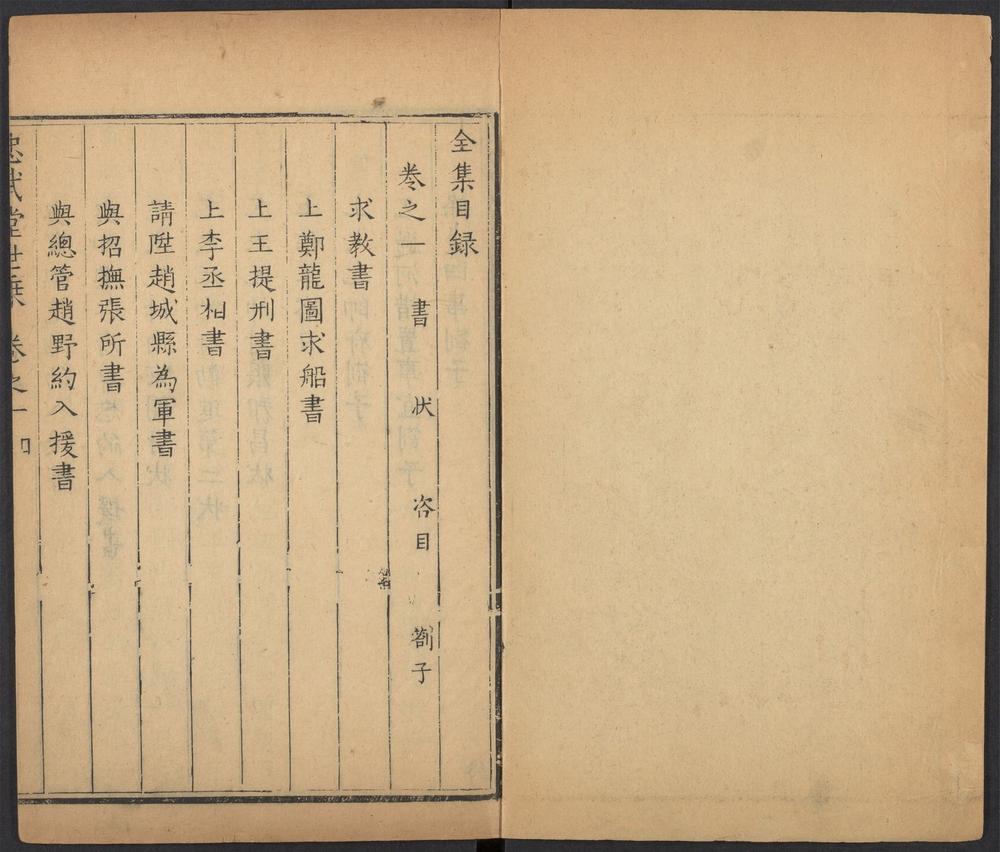 全集目録
卷之一 書 狀 咨目 劄子
求教書
上鄭龍圖求船書
上王提刑書
上李丞相書
請陞趙城縣為軍書
與招撫張所書
與總管趙野約入援書
忠武堂世 卷之一